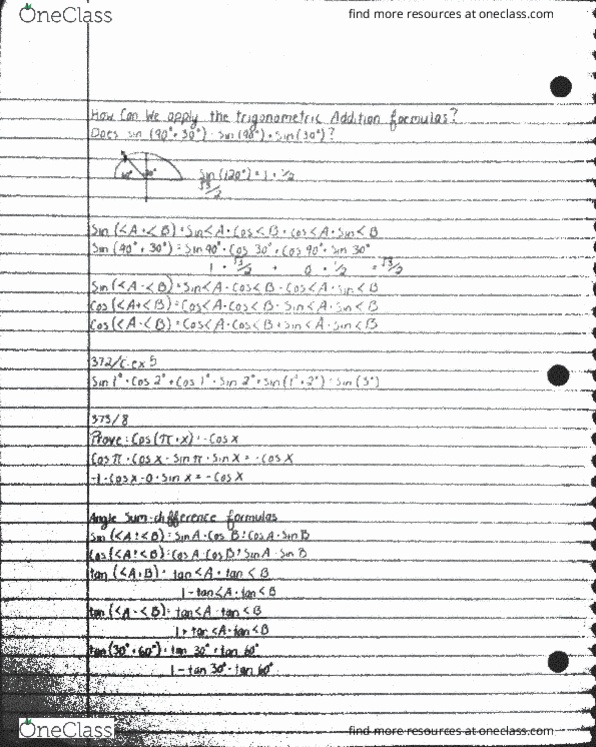 OneClass
find more resources at oneclass.com
How Can We apply the trigonometric Addition formulas?
Does sin (90°+30°) = sin(90°) + sin(30°)?
Sin(120°) = 1 + 1/2
√3/2
Sin (<A + <B) = Sin<A · Cos<B + Cos<A · Sin<B
Sin (90° + 30°) = Sin 90° · Cos 30° + Cos 90° · Sin 30°
1 · √3/2 + 0 · 1/2 = √3/2
Sin (<A - <B) = Sin<A · Cos<B - Cos<A · Sin<B
Cos (<A + <B) = Cos<A · Cos<B - Sin<A · Sin<B
Cos (<A - <B) = Cos<A · Cos<B + Sin<A · Sin<B
372/c.ex 5
Sin 1° · Cos 2° + Cos 1° · Sin 2° = Sin(1° + 2°) = Sin(3°)
373/8
Prove: Cos(π + x) = -Cos x
Cos π · Cos x - Sin π · Sin x = -Cos x
-1 · Cos x - 0 · Sin x = -Cos x
Angle Sum-difference formulas
Sin (<A ± <B) = Sin A · Cos B ± Cos A · Sin B
Cos (<A ± <B) = Cos A · Cos B ∓ Sin A · Sin B
tan (<A + B) = tan<A + tan<B
1 - tan<A · tan<B
tan (<A - <B) = tan<A - tan<B
1 + tan<A · tan<B
tan(30° + 60°) = tan 30° + tan 60°
1 - tan 30° · tan 60°
OneClass
find more resources at oneclass.com